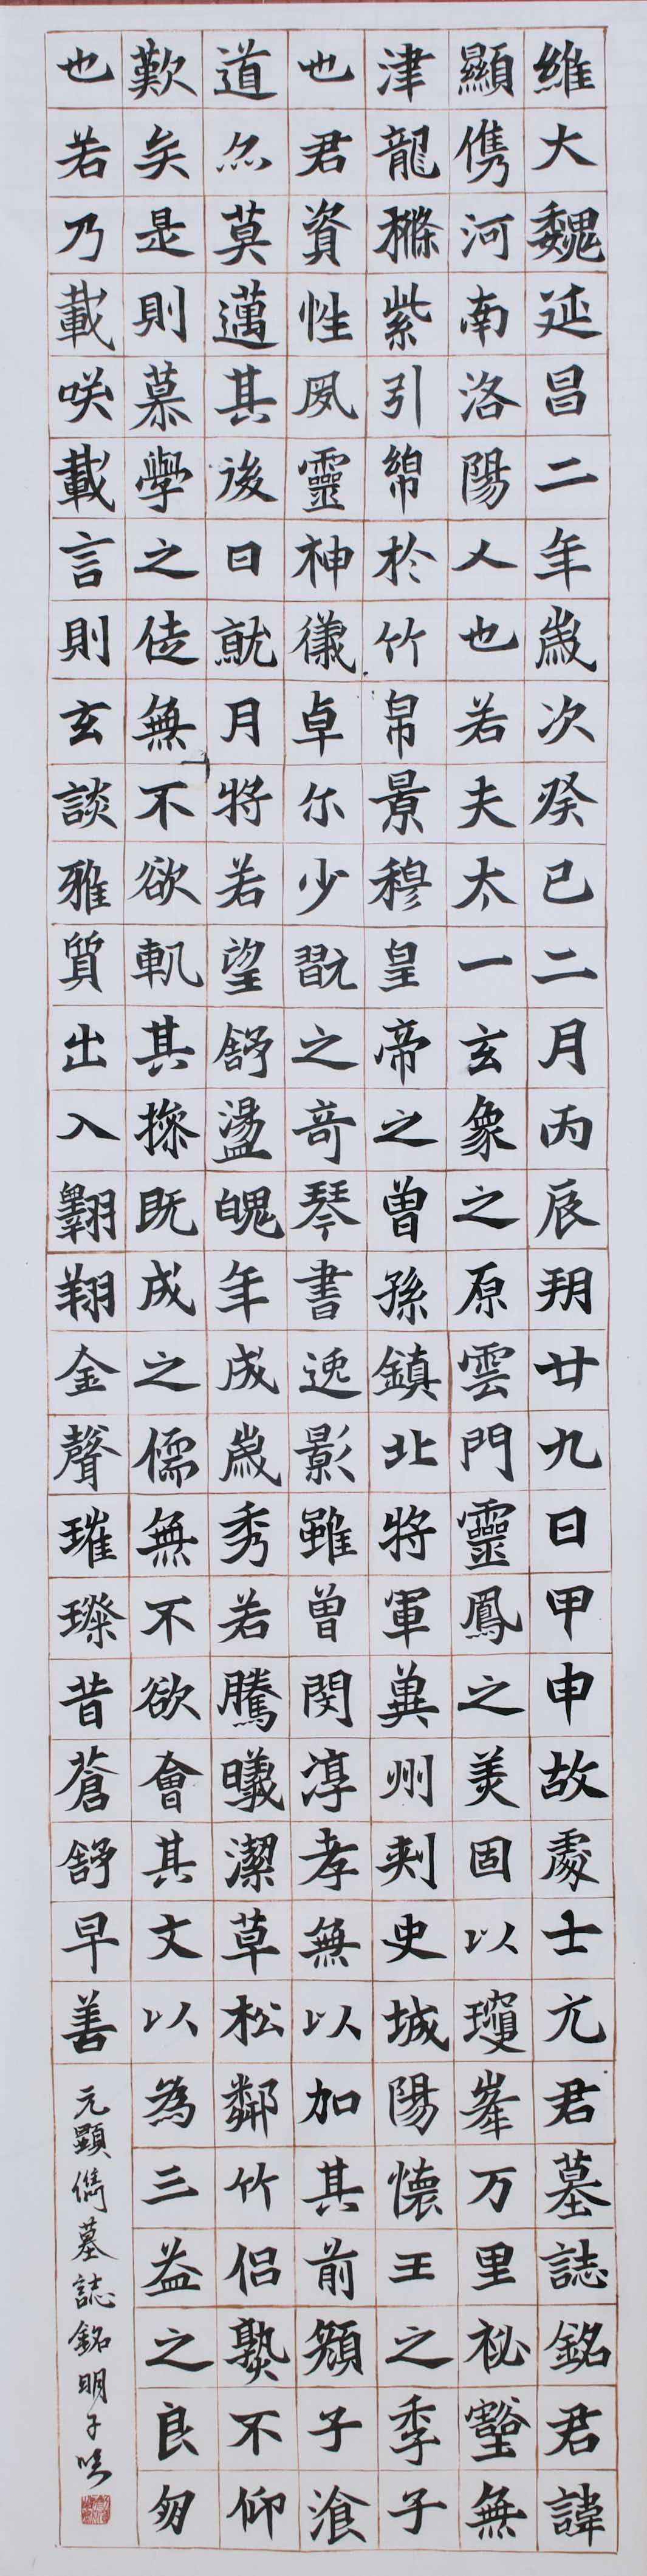 維大魏延昌二年歲次癸巳二月丙辰朔廿九日甲申故處士元君墓誌銘君諱
顯儁河南洛陽人也若夫太一玄象之原雲門靈鳳之美固以瓊峯万里祕壑無
津龍樤紫引綿於竹帛景穆皇帝之曾孫鎮北將軍冀州刺史城陽懷王之季子
也君資性夙靈神儀卓尔少翫之奇琴書逸影雖曾閔淳孝無以加其前顏子湌
道尒莫邁其後日就月將若望舒盪魄年成歲秀若騰曦潔草松鄰竹侶熟不仰
歎矣是則慕學之徒無不欲軌其操既成之儒無不欲會其文以為三益之良朋
也若乃載咲載言則玄談雅質出入翱翔金聲璀璨昔蒼舒早善
元顯儁墓誌銘明子